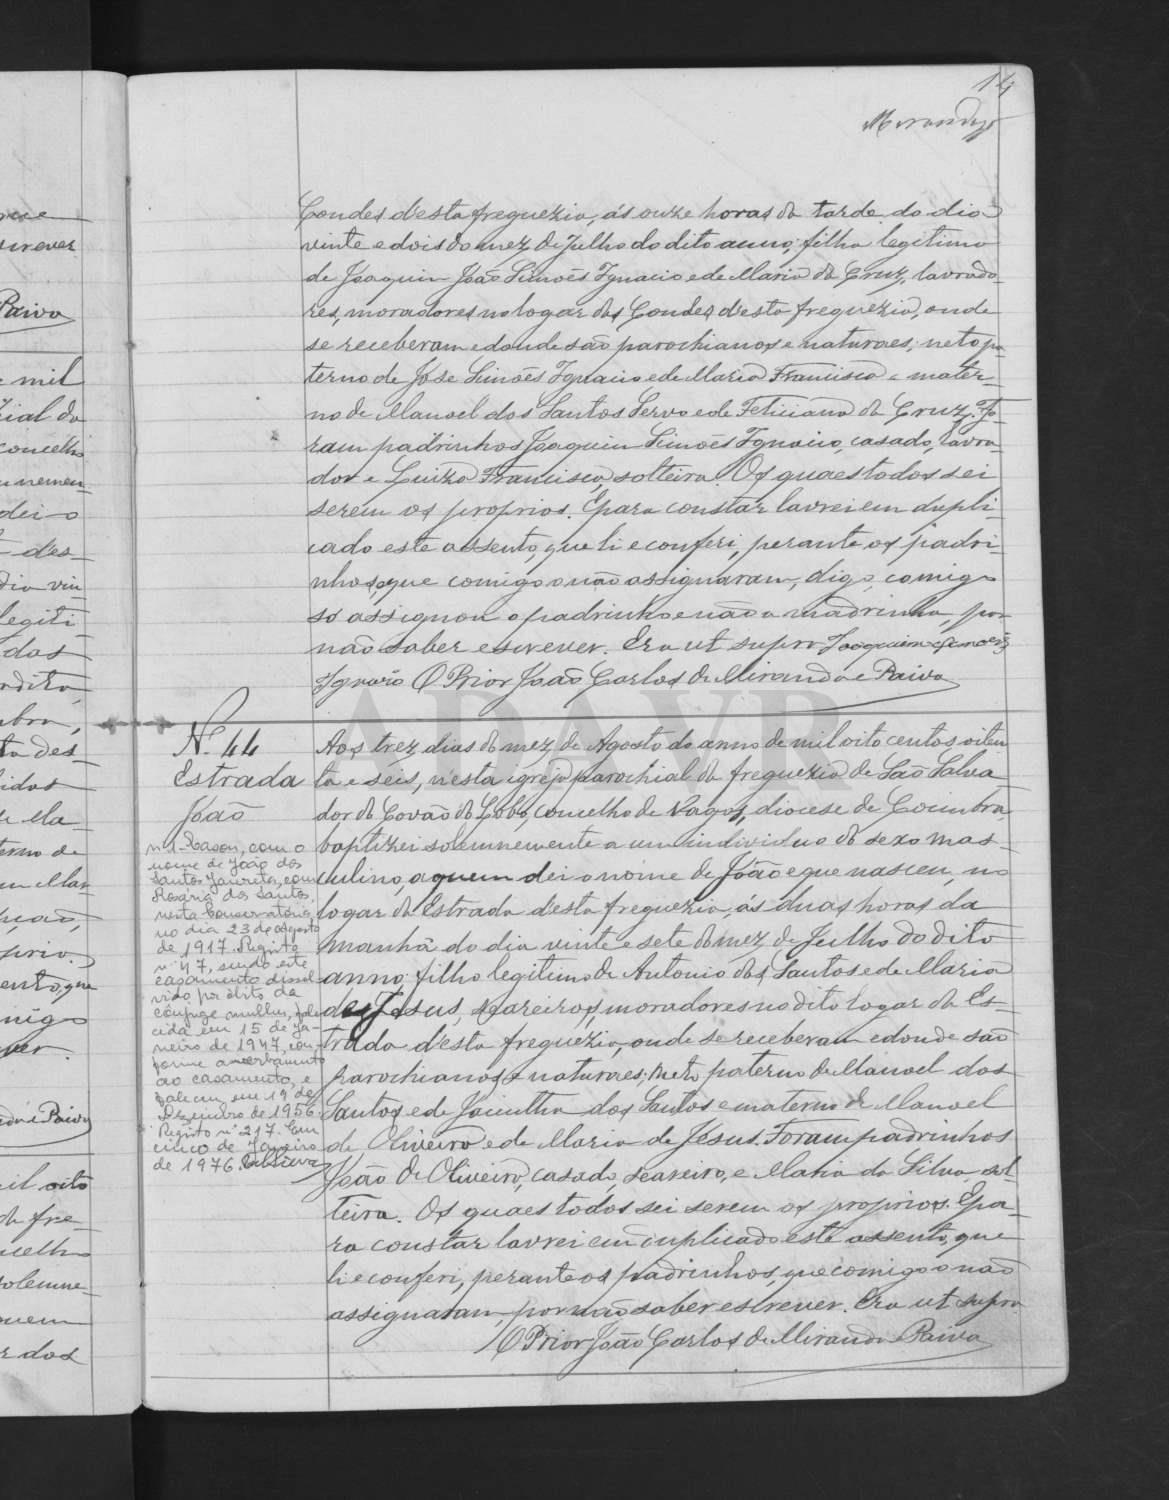 14
Miranda
Condes d'esta freguezia, ás onze horas da tarde do dia
vinte e dois do mez de Julho do dito anno; filha legitima
de Joaquim João Simões Ignacio e de Maria da Cruz, lavrado-
res, moradores no logar dos Condes d'esta freguezia, onde
se receberam e donde são parochianos e naturaes; neto pa-
terno de José Simões Ignacio e de Maria Francisca e mater-
no de Manoel dos Santos Servo e de Feliciana da Cruz. Fo-
ram padrinhos Joaquim Simões Ignacio, casado, lavra-
dor e Luiza Francisca, solteira. Os quaes todos sei
serem os proprios. E para constar lavrei em dupli-
cado este assento, que li e conferi, perante os padri-
nhos, que comigo o não assignaram, digo, comigo
so assignou o padrinho e não a madrinha, por
não saber escrever. Era ut supra Joaquim Simões
Ignacio O Prior João Carlos de Miranda e Paiva
ADAVR
N.º 44
Estrada
João
Aos trez dias do mez de Agosto do anno de mil oito centos oiten-
ta e seis, n'esta igreja parochial da freguezia de São Salva-
dor da Covão do Lobo, concelho de Vagos, diocese de Coimbra,
baptizei solemnemente a um individuo do sexo mas-
culino, a quem dei o nome de João e que nasceu, no
logar da Estrada d'esta freguezia, ás duas horas da
manhã do dia vinte e sete do mez de Julho do dito
anno; filho legitimo de Antonio dos Santos e de Maria
de Jesus, seareiros, moradores no dito logar da Es-
trada d'esta freguezia, onde se receberam e donde são
parochianos e naturaes; neto paterno de Manoel dos
Santos e de Jacintha dos Santos e materno de Manoel
de Oliveira e de Maria de Jesus. Foram padrinhos
João de Oliveira, casado, seareiro, e Maria da Silva, sol-
teira. Os quaes todos sei serem os proprios. E pa-
ra constar lavrei em duplicado este assento, que
li e conferi, perante os padrinhos, que comigo o não
assignaram, por não saber escrever. Era ut supra
O Prior João Carlos de Miranda e Paiva
nº 1 - Casou, com o
nome de João dos
Santos Janreta, com
Rosaria dos Santos,
nesta Conservatória,
no dia 23 de agosto
de 1917. Registo
nº 47, sendo este
casamento dissol-
vido por óbito da
conjuge mulher, fale-
cida em 15 de Ja-
neiro de 1947, con-
forme averbamento
ao casamento, e
faleceu, em 19 de
Dezembro de 1956.
Registo nº 217. Em
cinco de Janeiro
de 1976.